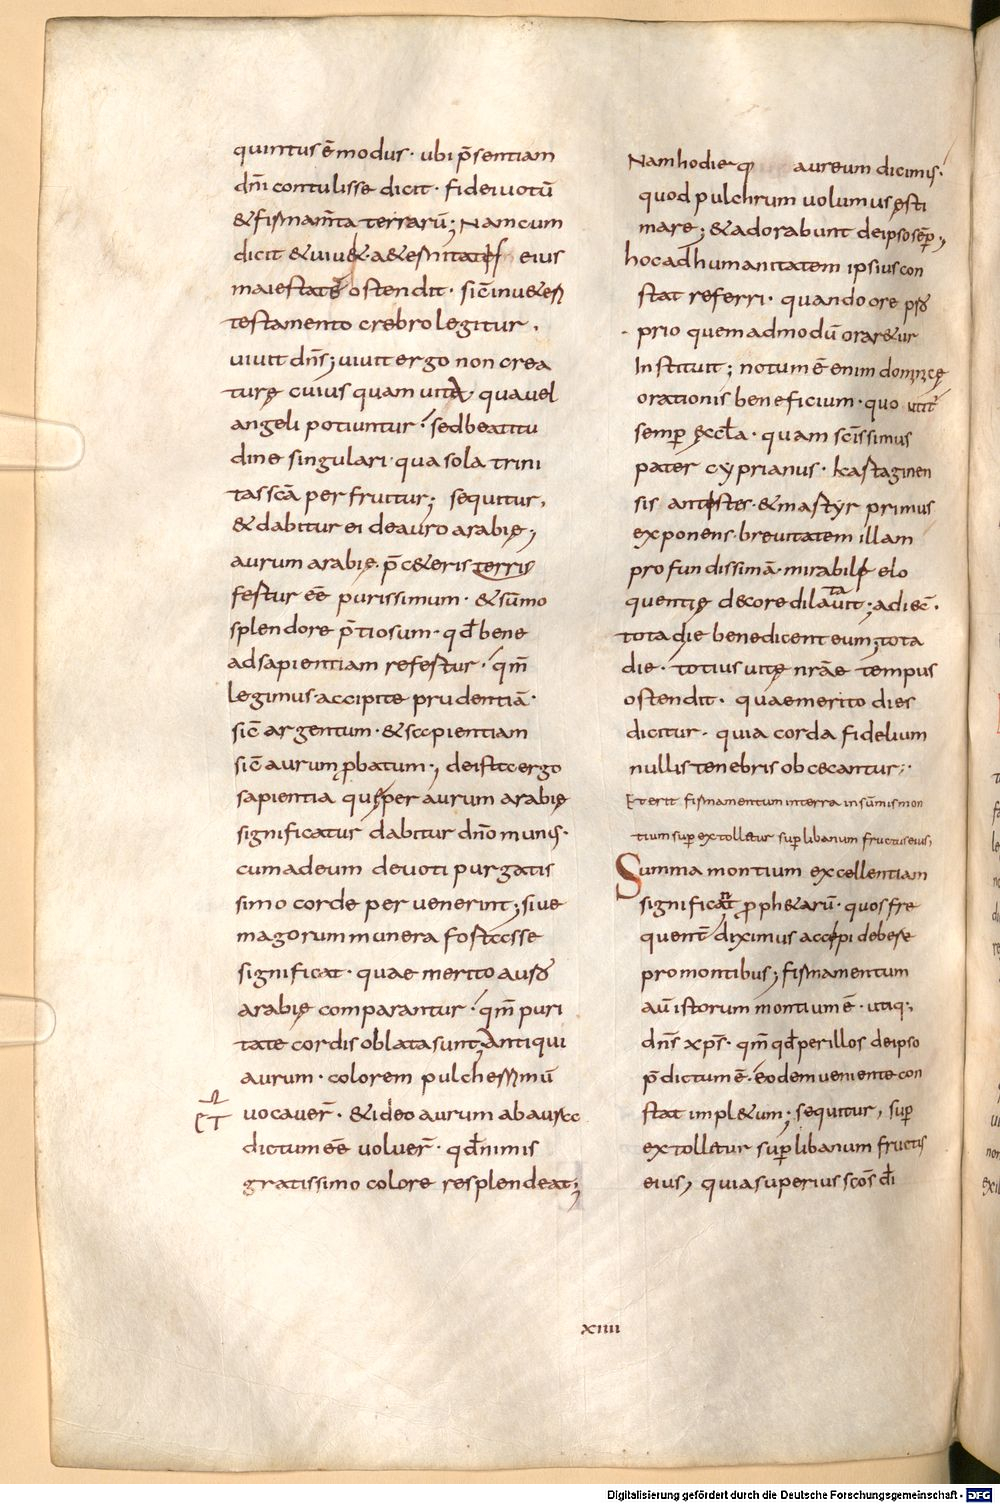 quintus ē modus · ubi p̄sentiam
dn̄i contulisse dicit · fidei uotū
& firmam̄ta terrarū; Nam cum
dicit & uiu& · a&ernitatē eius
maiestatē ostendit · sic̄ in u&eri
testamento crebro legitur ·
uiuit dn̄s; uiuit ergo non crea
turę cuius quam uita · qua uel
angeli potiuntur · sed beatitu
dine singulari · qua sola trini
tas sc̄a perfruitur; sequitur,
& dabitur ei de auro arabię;
aurum arabię · p̄ c&eris terris
fertur ēē purissimum · & sūmo
splendore p̄tiosum · qd̄ bene
ad sapientiam refertur · qm̄
legimus · accipite prudentiā ·
sic̄ argentum · & sapientiam
sic̄ aurum ꝓbatum ·, de ista ergo
sapientia quę per aurum arabię
significatur dabitur dn̄o munus ·
cum ad eum deuoti purgatis
simo corde peruenerint; siue
magorum munera fortasse
significat · quae merito auro
arabię comparantur · qm̄ puri
tate cordis oblata sunt; Antiqui
aurum · colorem pulcherrimū
uocauer̄ · & ideo aurum ab aura
dictum ēē uoluer̄ · qd̄ nimis
gratissimo colore resplendeat;
Nam hodieq aureum dicimus ·
quod pulchrum uolumus ęsti
mare; & adorabunt de ipso sēp̄;
hoc ad humanitatem ipsius con
stat referri · quando ore pro
prio quemadmodū orar&ur
Instituit; notum ē enim dominicę
orationis beneficium · quo utit̄
semꝑ ęccl̄a · quam sc̄issimus
pater cyprianus · kartaginen
sis antestes · & martyr primus
exponens · breuitatem illam
profundissimā · mirabile elo
quentię decore dilatauit; adiec̄ ·
tota die benedicent eum; tota
die · totius uitę nr̄ae tempus
ostendit · quae merito dies
dicitur · quia corda fidelium
nullis tenebris obcecantur;
Et erit firmamentum in terra in sūmis mon
tium suꝑ extolletur suꝑ libanum fructus eius;
Summa montium excellentiam
significant ꝓph&arū · quos fre
quent̄ diximus accepi debere
pro montibus; firmamentum
aū istorum montium ē · utiq;
dn̄s xp̄s · qm̄ qd̄ per illos de ipso
p̄dictum ē · eodem ueniente con
stat impl&um; sequitur, suꝑ
extolletur suꝑ libanum fructus
eius, quia superius sc̄os d̄i
xiiii
Digitalisierung gefördert durch die Deutsche Forschungsgemeinschaft - DFG